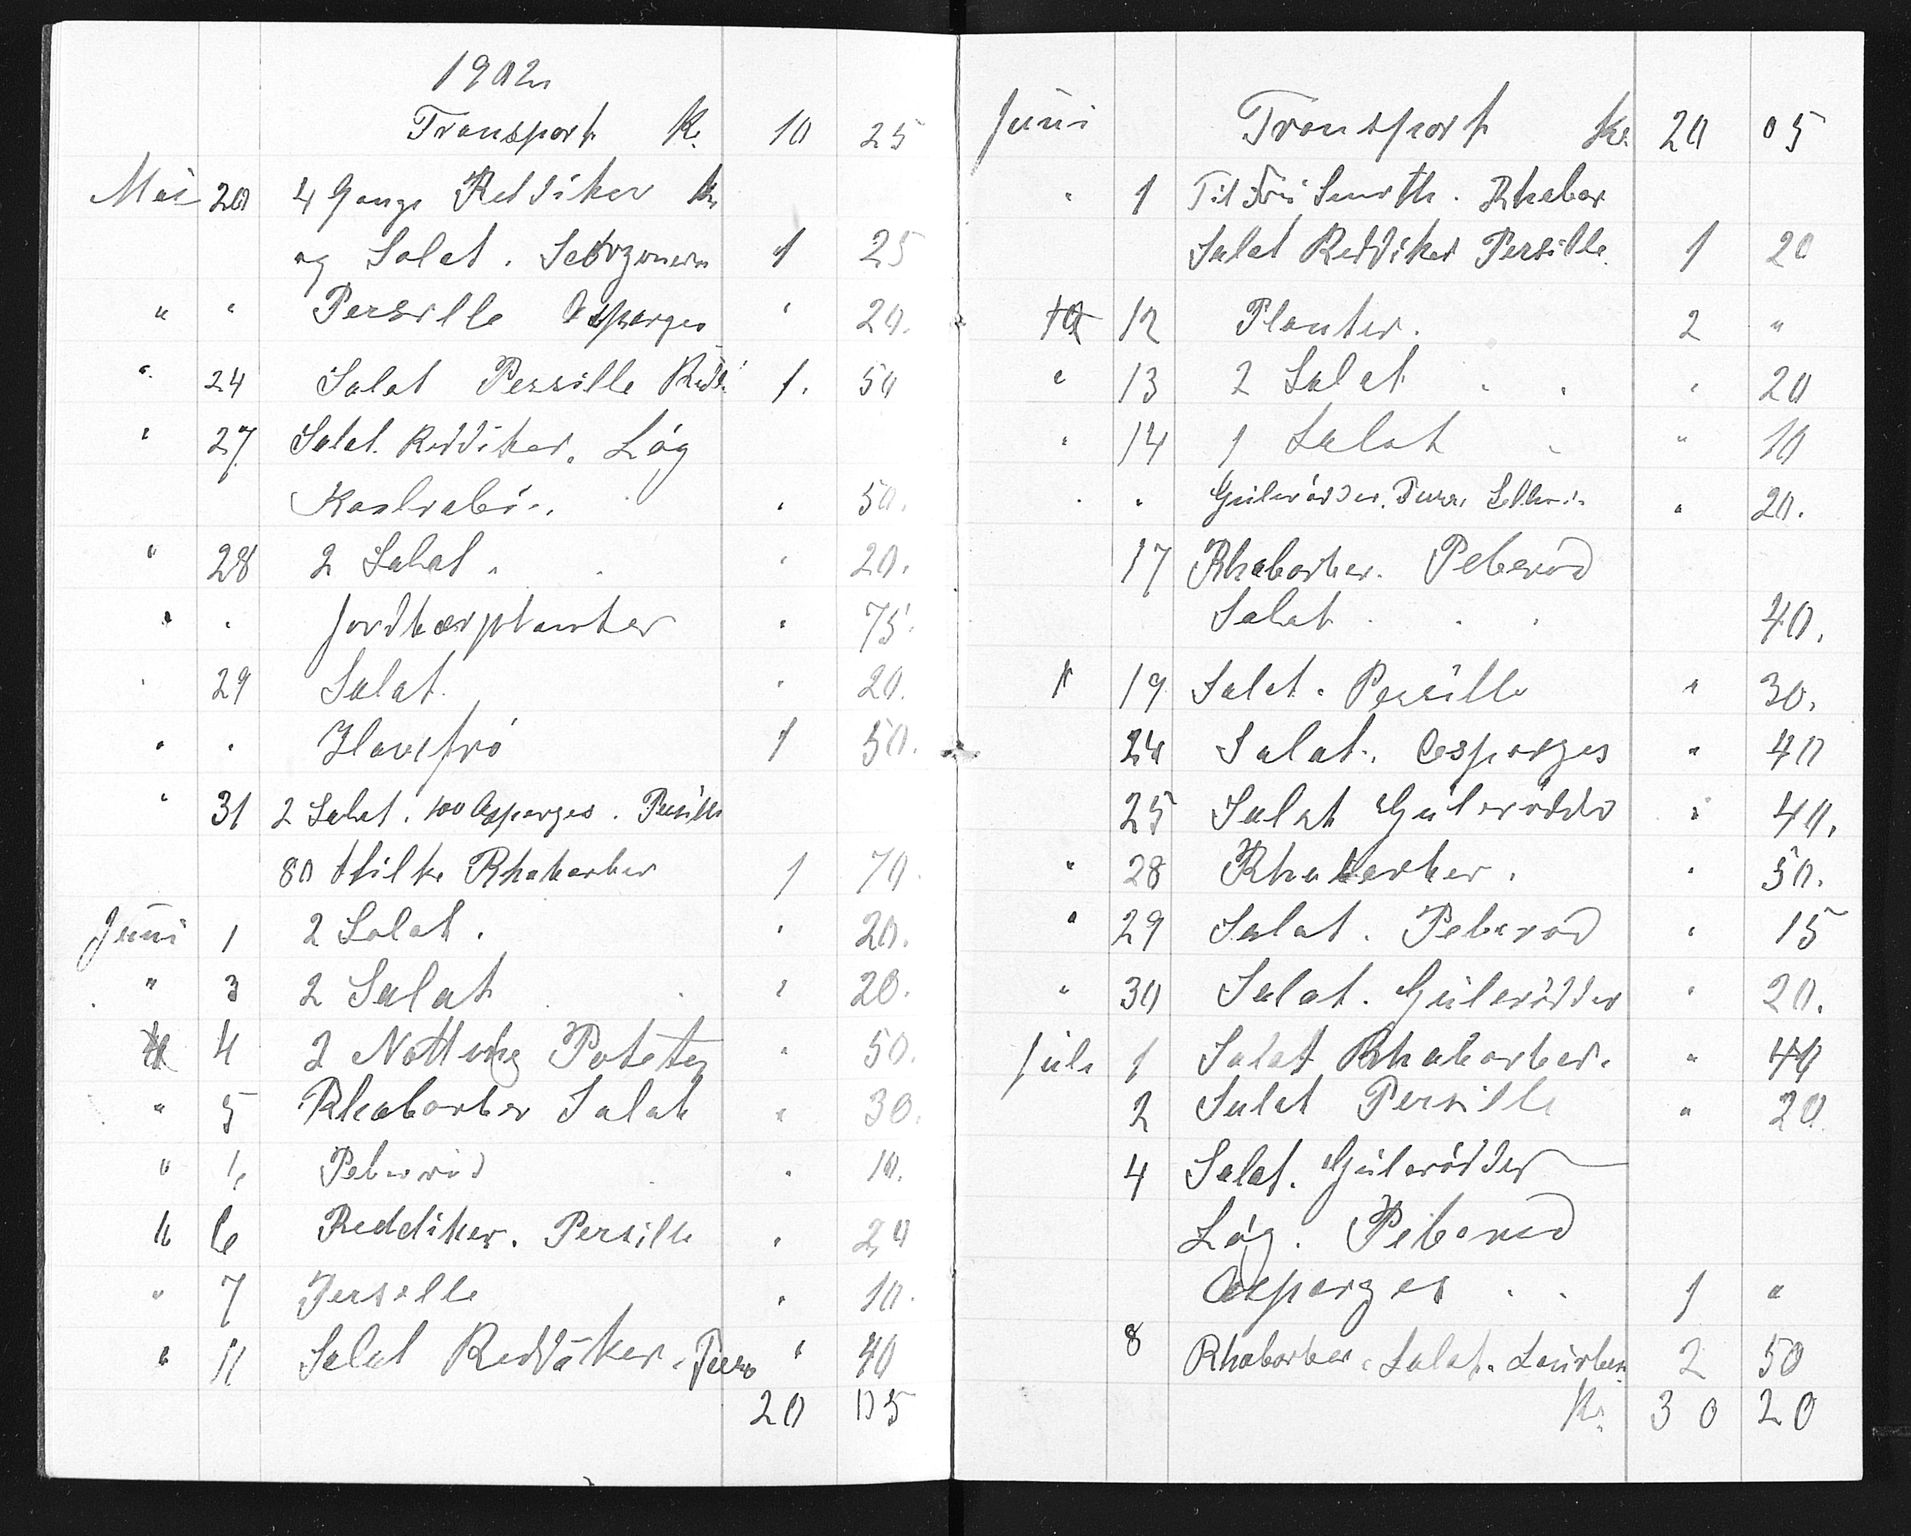 1902
Transport Kr. 10 25
Mai 20 4 Gange Reddiker Kr
og Salat. Scorzonera 1 25
" " Persille Asparges " 20.
" 24 Salat Persille Redd. 1. 50
" 27 Salat. Reddiker. Løg
Kaalrabi. " 50.
" 28 2 Salat. " 20.
" " Jordbærplanter " 75.
" 29 Salat. " 20.
" " Havefrø 1 50.
" 31 2 Salat. 100 Asparges. Persille
80 Stilke Rhabarber 1 70.
Juni 1 2 Salat. " 20.
" 3 2 Salat " 20.
4 2 Poteter " 50.
" 5 Rhabarber Salat " 30.
" " Peberrod " 10.
" 6 Reddiker. Persille " 20
" 7 Persille " 10.
" 11 Salat Reddiker. Purre " 40
20 05
Juni Transport Kr. 20 05
" 1 Til Smith. Rhabar
Salat Reddiker Persille. 1 20
12 Planter. 2 "
" 13 2 Salat " 20
" 14 1 Salat " 10
" " Gulerødder. Purre Selleri. " 20.
17 Rhabarber. Peberrod
Salat 40.
" 19 Salat. Persille " 30.
24 Salat. Asparges " 40
25 Salat Gulerødder " 40.
" 28 Rhabarber. " 50.
" 29 Salat. Peberrod " 15
" 30 Salat. Gulerødder " 20.
Juli 1 Salat Rhabarber. " 40
2 Salat Persille " 20.
4 Salat. Gulerødder
Løg. Peberrod
Asparges 1 "
8 Rhabarber. Salat. Laurbær 2 50
Kr. 30 20